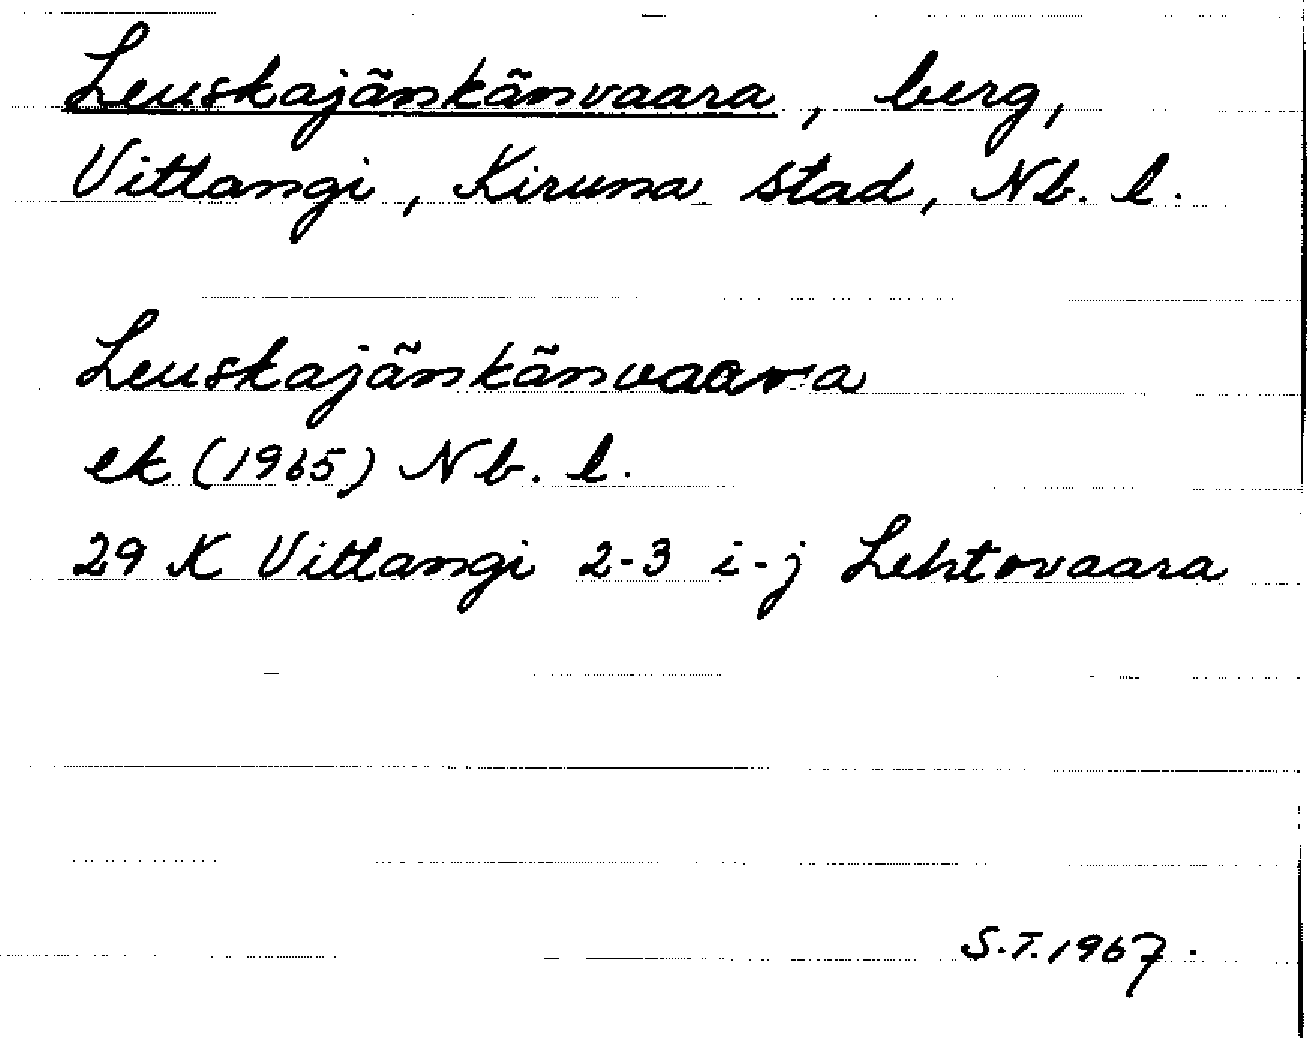 Leuskajänkänvaara, berg,
Vittangi, Kiruna stad, Nb. l.
Leuskajänkänvaara
ek (1965) Nb. l.
29 K Vittangi 2-3 i-j Lehtovaara
S.T. 1967.